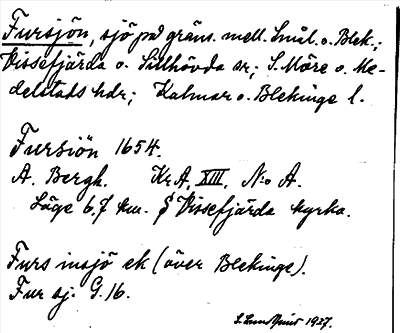 Fursjön, sjö på gräns. mell. Smål. o. Blek.;
Vissefjärda o. Sillhövda sr; S. Möre o. Me-
delstads hdr; Kalmar o. Blekinge l.
Fursiön 1654.
A. Bergh. Kr.A. XIII. No A.
Läge 6,7 km. § Vissefjärda kyrka.
Furs insjö ek (över Blekinge).
Fur sj. G. 16.
1927.